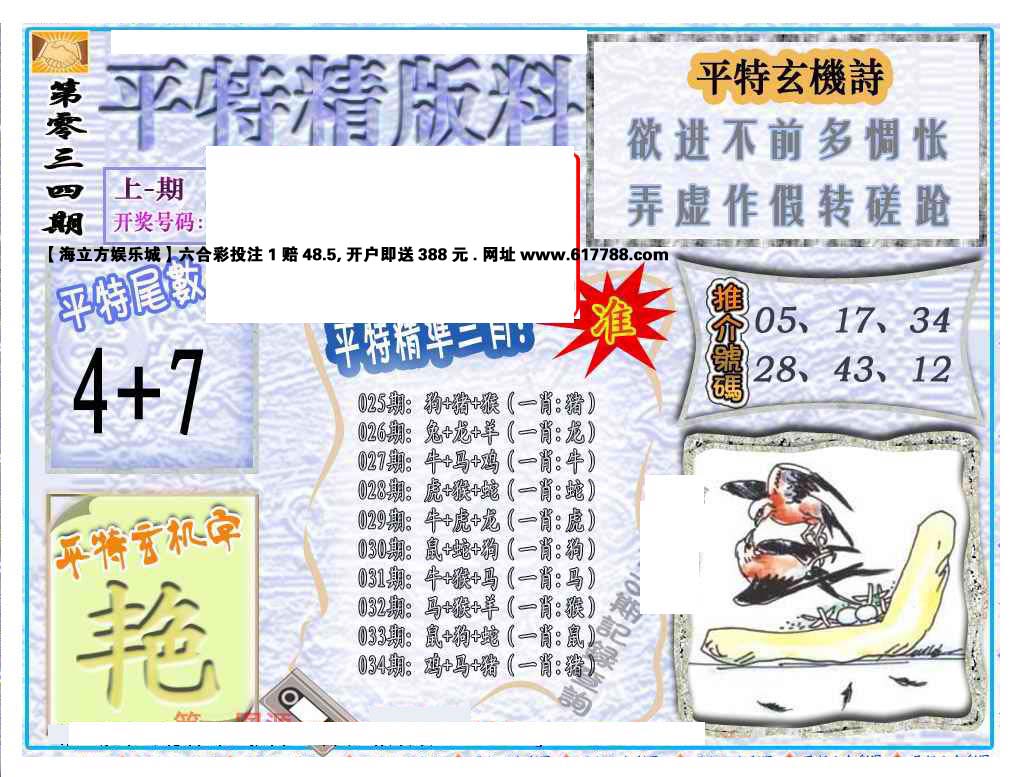 第零三四期
平特精版料
上-期
开奖号码:
平特玄機詩
欲进不前多惆怅
弄虚作假转磋跄
【海立方娱乐城】六合彩投注1赔48.5,开户即送388元.网址www.617788.com
平特尾數
4+7
平特精準三肖!
准
推介號碼
05、17、34
28、43、12
025期: 狗+猪+猴(一肖:猪)
026期: 兔+龙+羊(一肖:龙)
027期: 牛+马+鸡(一肖:牛)
028期: 虎+猴+蛇(一肖:蛇)
029期: 牛+虎+龙(一肖:虎)
030期: 鼠+蛇+狗(一肖:狗)
031期: 牛+猴+马(一肖:马)
032期: 马+猴+羊(一肖:猴)
033期: 鼠+狗+蛇(一肖:鼠)
034期: 鸡+马+猪(一肖:猪)
期記錄查詢
平特玄机字
艳